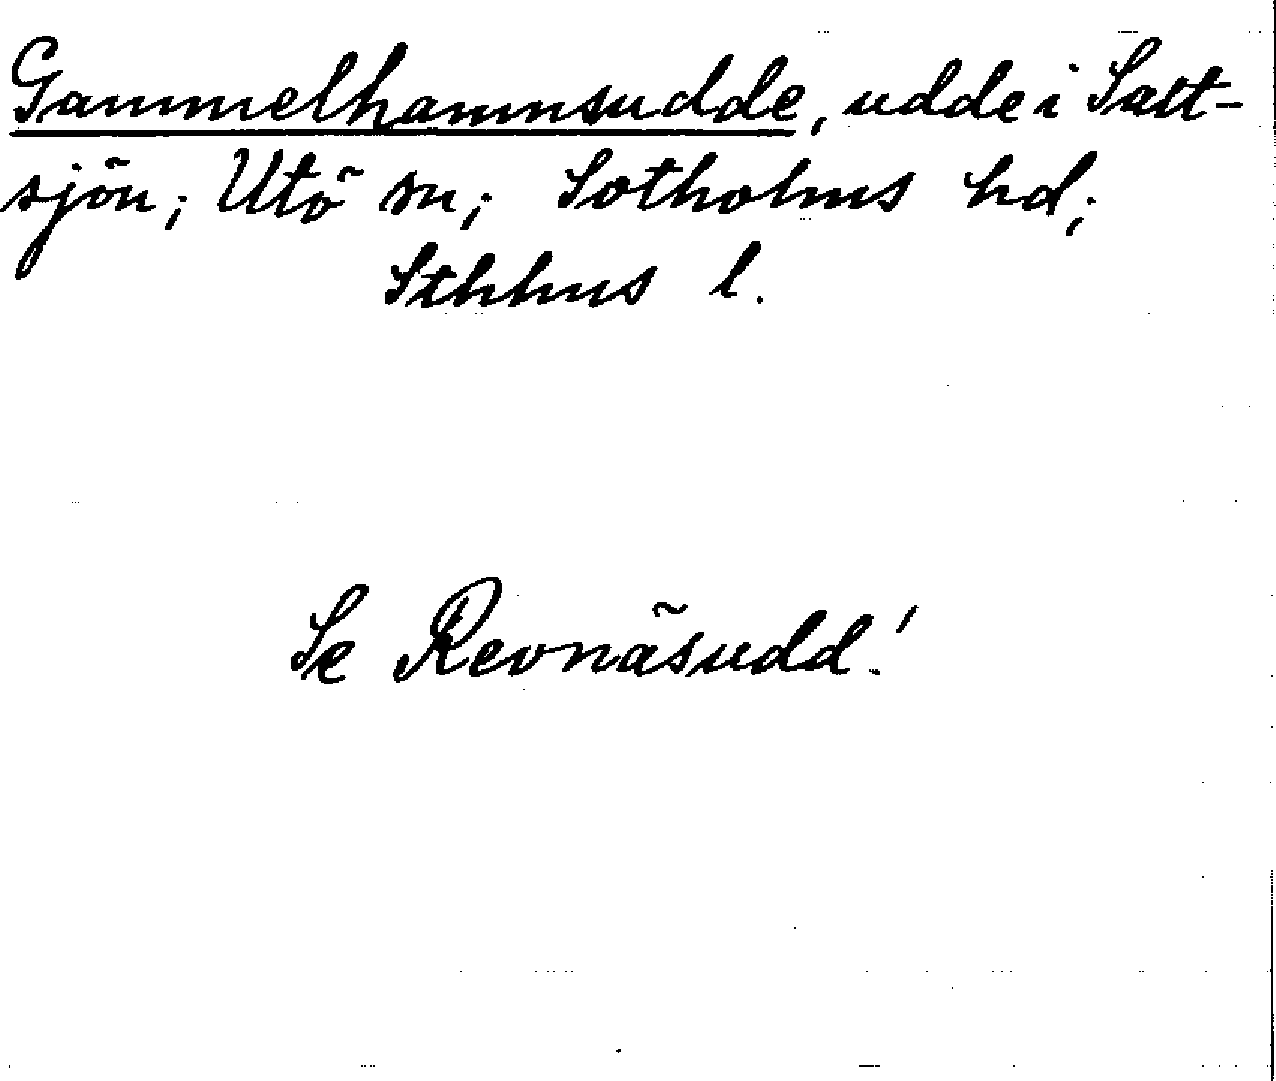 Gammelhamnsudde, udde i Salt-
sjön; Utö sn; Sotholms hd;
Sthlms l.
Se Revnäsudd!